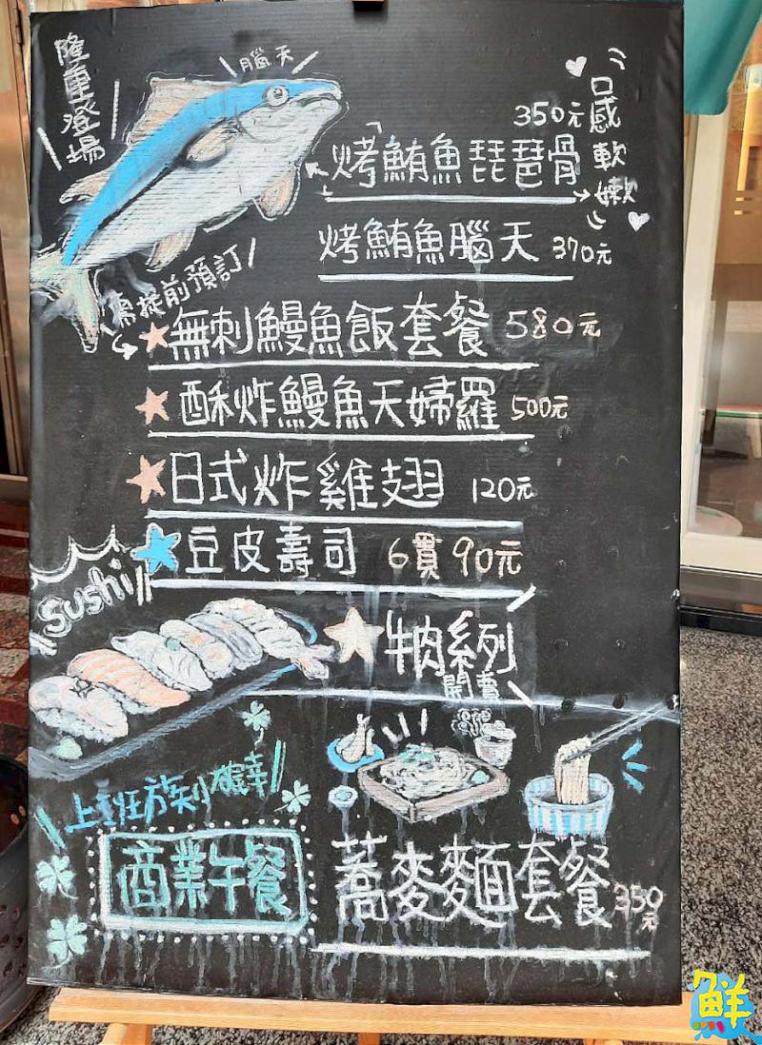 隆重登場
腦天
350元
口感軟嫩
烤鮪魚琵琶骨
烤鮪魚腦天 370元
需提前預訂
無刺鰻魚飯套餐 580元
酥炸鰻魚天婦羅 500元
日式炸雞翅 120元
豆皮壽司 6貫 90元
Sushi
牛肉系列
開賣
上班族小確幸
商業午餐
蕎麥麵套餐 350元
鮮